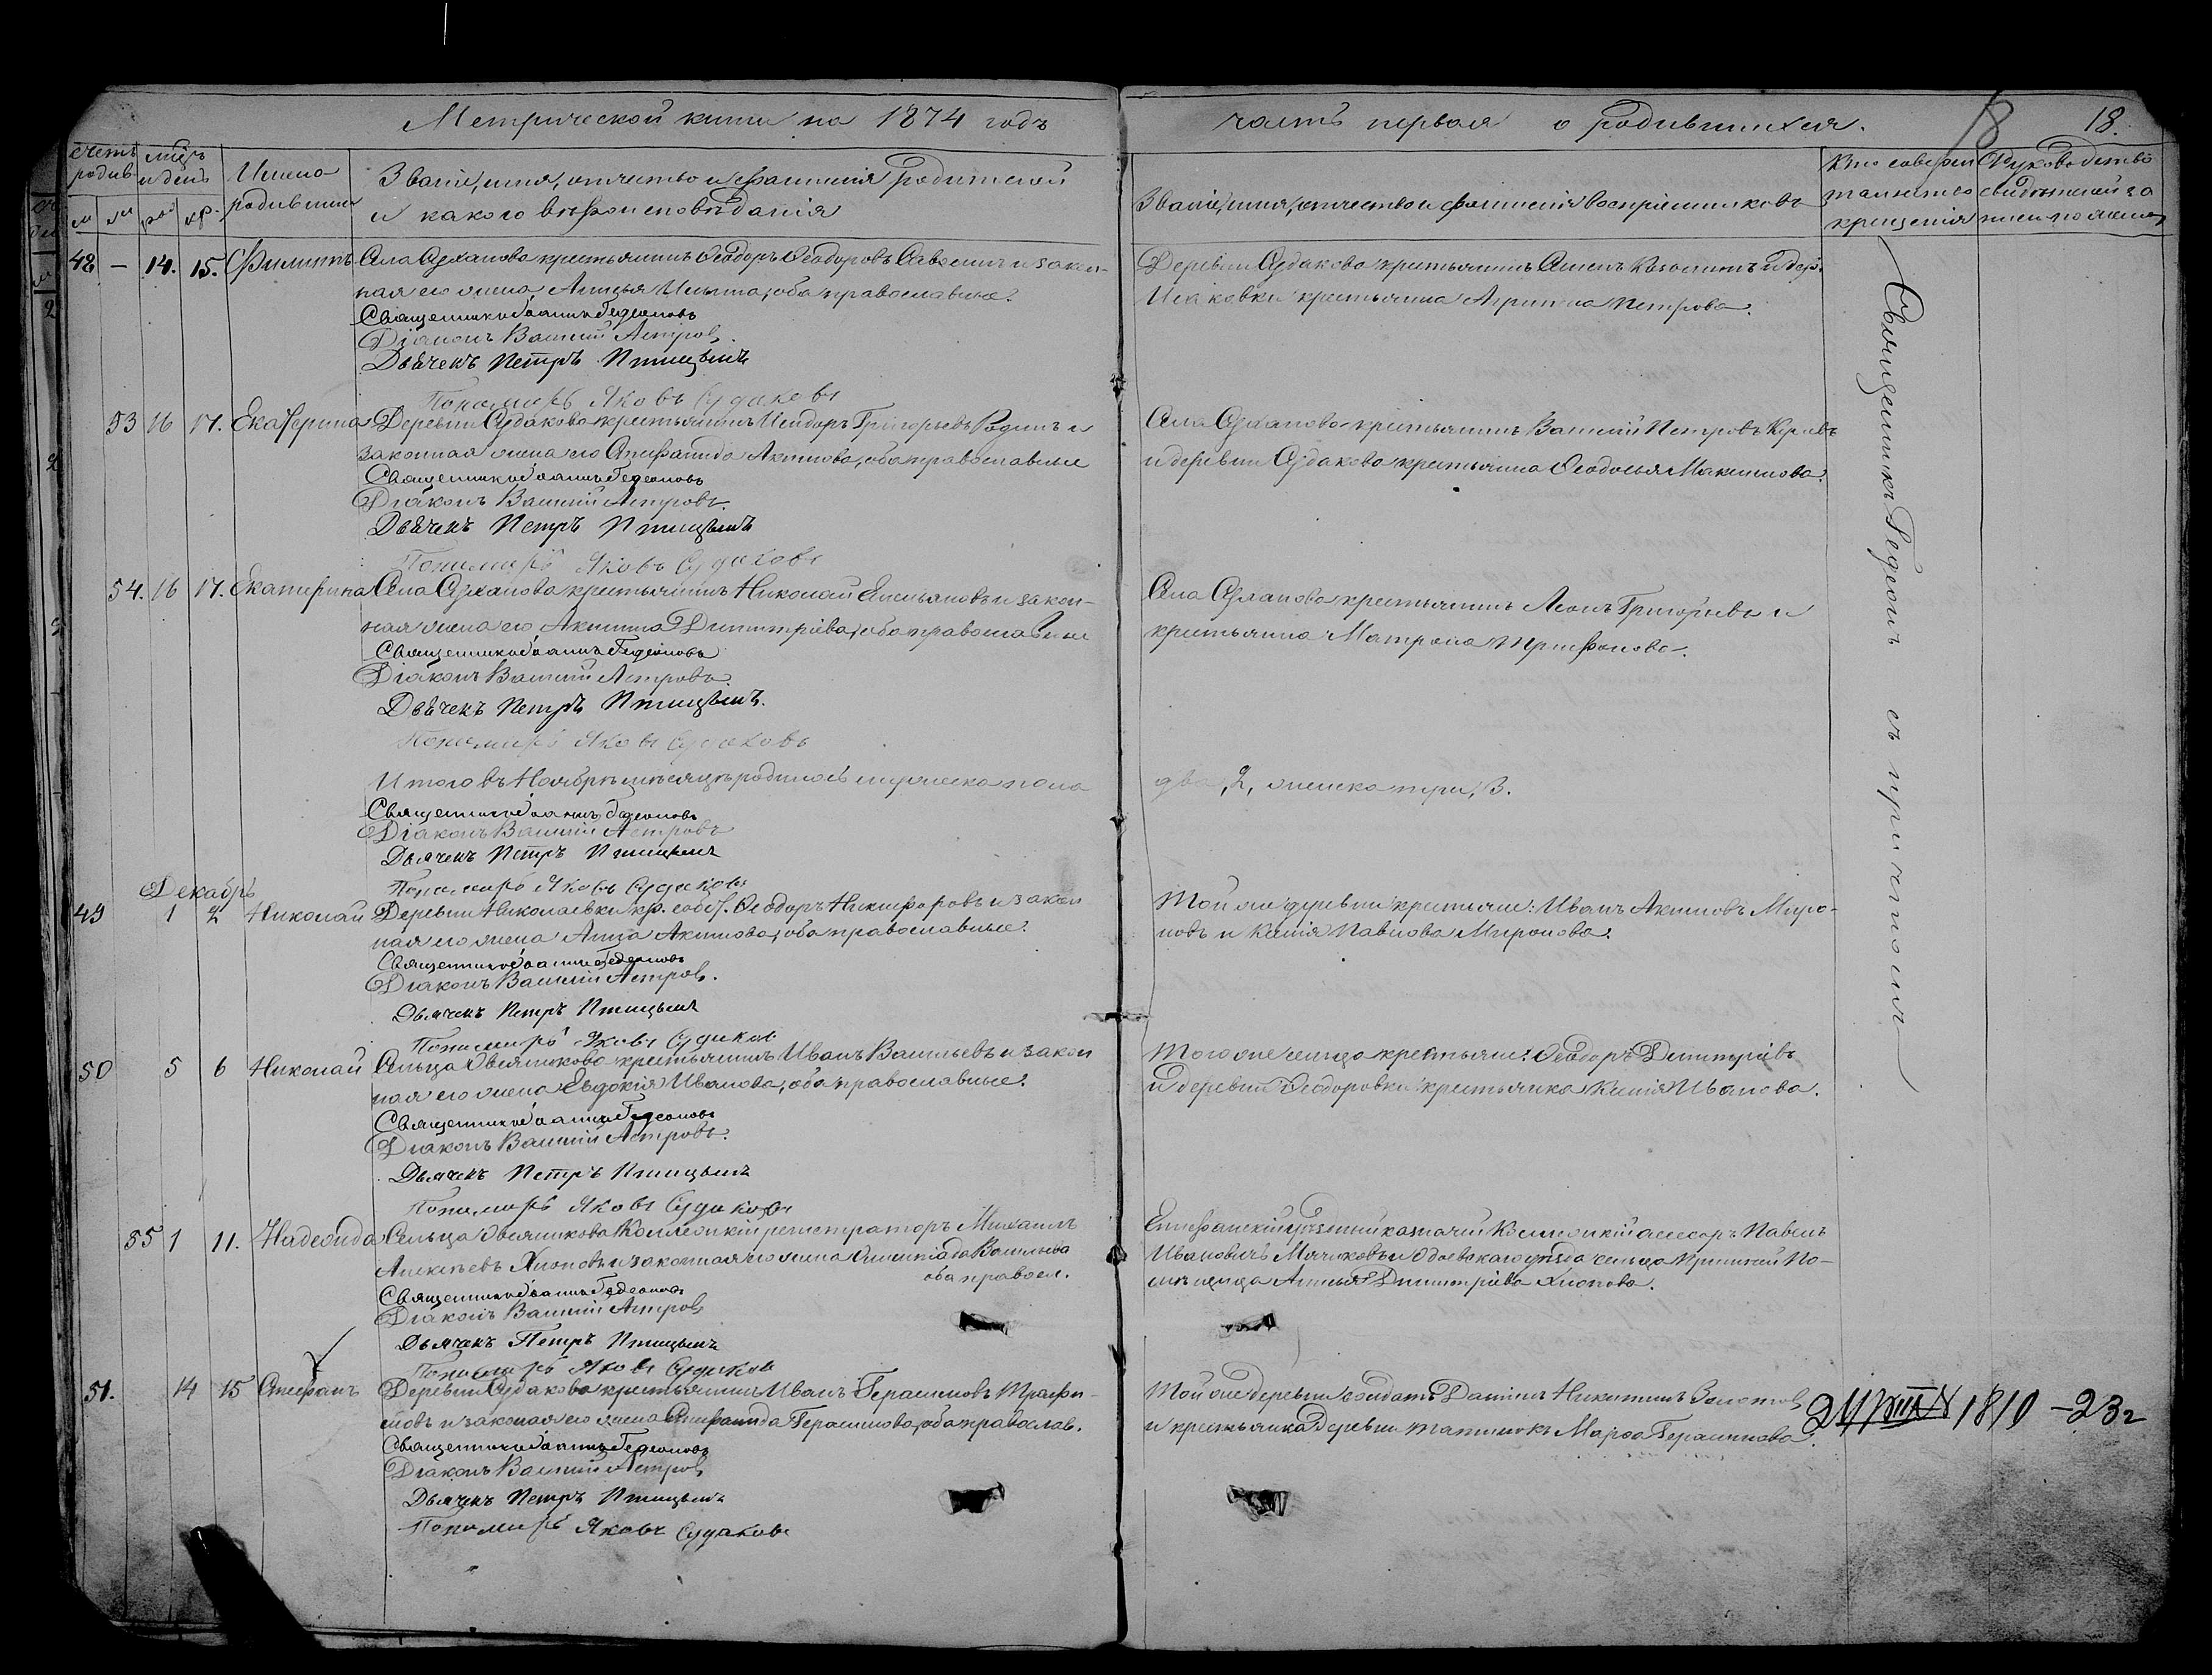 Метрической книги на 1874 годъ
часть первая о родившихся.
18
18.
счетъ родив.
мѣсц. и день
м
ж
рож.
кр.
Имена родившихся
Званіе, имя, отчество и фамилія родителей
и какого вѣроисповѣданія
Званіе, имя, отчество и фамилія воспріемниковъ
Кто соверш.
таинство
крещенія
Рукоприкладство
свидѣтелей за
писи по желан.
48 – 14. 15. Филиппъ Села Суханова крестьянинъ Ѳеодоръ Ѳеодоровъ и закон-
ная его жена Ильина, оба православные.
Священникъ Іоаннъ Гедеоновъ
Діаконъ Василій Астровъ
Дьячекъ Петръ Птицынъ
Пономарь Яковъ Судаковъ
Деревни Судаково крестьянинъ и дер.
Исаковки крестьянка Агрипина Петрова.
Священникъ Гедеоновъ съ причтомъ
53 16 17. Екатерина Деревни Судаково крестьянинъ Исидоръ Григорьевъ Родинъ и
законная жена его Епифанида Акимова, оба православные
Священникъ Іоаннъ Гедеоновъ
Діаконъ Василій Астровъ.
Дьячекъ Петръ Птицынъ
Пономарь Яковъ Судаковъ
Села Суханово крестьянинъ Василій Петровъ
и деревни Судаково крестьянка Ѳеодосья Максимова.
54. 16 17. Екатерина Села Суханова крестьянинъ Николай Емельяновъ и закон-
ная жена его Акилина Димитріева, оба православные
Священникъ Іоаннъ Гедеоновъ
Діаконъ Василій Астровъ.
Дьячекъ Петръ Птицынъ.
Пономарь Яковъ Судаковъ
Села Суханово крестьянинъ Леонъ Григорьевъ и
крестьянка Матрона Трифонова.
Итого въ Ноябрѣ мѣсяцѣ родилось мужеска пола
два, 2, женска три, 3.
Священникъ Іоаннъ Гедеоновъ
Діаконъ Василій Астровъ
Дьячекъ Петръ Птицынъ
Пономарь Яковъ Судаковъ
Декабрь
49 1 2 Николай Деревни Николаевки кр. собст. Ѳеодоръ Никифоровъ и закон
ная его жена Анна Акимова, оба православные.
Священникъ Іоаннъ Гедеоновъ
Діаконъ Василій Астровъ.
Дьячекъ Петръ Птицынъ
Пономарь Яковъ Судаковъ
Той же деревни крестьяне: Иванъ Акимовъ Миро-
новъ и Ксенія Павлова Миронова.
50 5 6 Николай Сельца Овсянниково крестьянинъ Иванъ Васильевъ и закон
ная его жена Евдокія Иванова, оба православные.
Священникъ Іоаннъ Гедеоновъ
Діаконъ Василій Астровъ.
Дьячекъ Петръ Птицынъ
Пономарь Яковъ Судаковъ
Того же сельца крестьяне: Ѳеодоръ Димитріевъ
и деревни Ѳеодоровки крестьянка Ксенія Иванова.
55 1 11. Надежда Сельца Овсянникова Коллежскій регистраторъ Михаилъ
Алексѣевъ Хлоповъ и законная его жена Олимпіада Васильева
оба правосл.
Священникъ Іоаннъ Гедеоновъ
Діаконъ Василій Астровъ
Дьячекъ Петръ Птицынъ
Пономарь Яковъ Судаковъ
Епифанскій уѣздный казначей Коллежскій ассесоръ Павелъ
Ивановичъ и Одоевскаго уѣзда сельца По-
мѣщица Димитріева Хлопова.
51. 14 15 Стефанъ Деревни Судаково крестьянинъ Иванъ Герасимовъ
и законая его жена Епифанида Герасимова, оба православ.
Священникъ Іоаннъ Гедеоновъ
Діаконъ Василій Астровъ
Дьячекъ Петръ Птицынъ
Пономарь Яковъ Судаковъ
Той же деревни солдатъ Даніилъ Никитинъ
и крестьянка деревни Марѳа Герасимова.
1810 – 23г